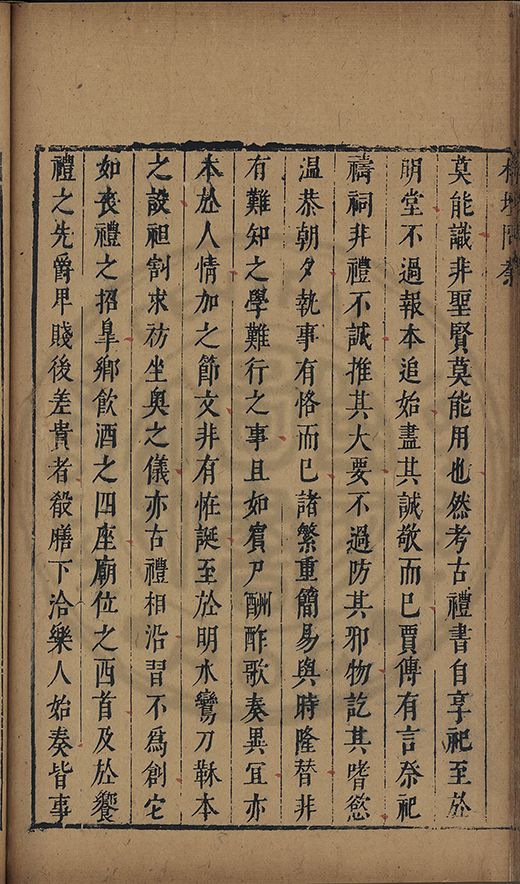 莫能識非聖賢莫能用也然考古禮書自享祀至於
明堂不過報本追始盡其誠敬而已賈傳有言祭祀
禱祠非禮不誠推其大要不過防其邪物訖其嗜慾
温恭朝夕執事有恪而已諸繁重簡易與時隆替非
有難知之學難行之事且如賓尸酬酢歌奏異宜亦
本於人情加之節文非有恠誕至於明水鸞刀穌本
之設袒割求祊坐奥之儀亦古禮相沿習不為創它
如喪禮之招皐鄉飲酒之四座廟位之西首及於饗
禮之先爵甲賤後差貴者殽膳下洽樂人始奏皆事